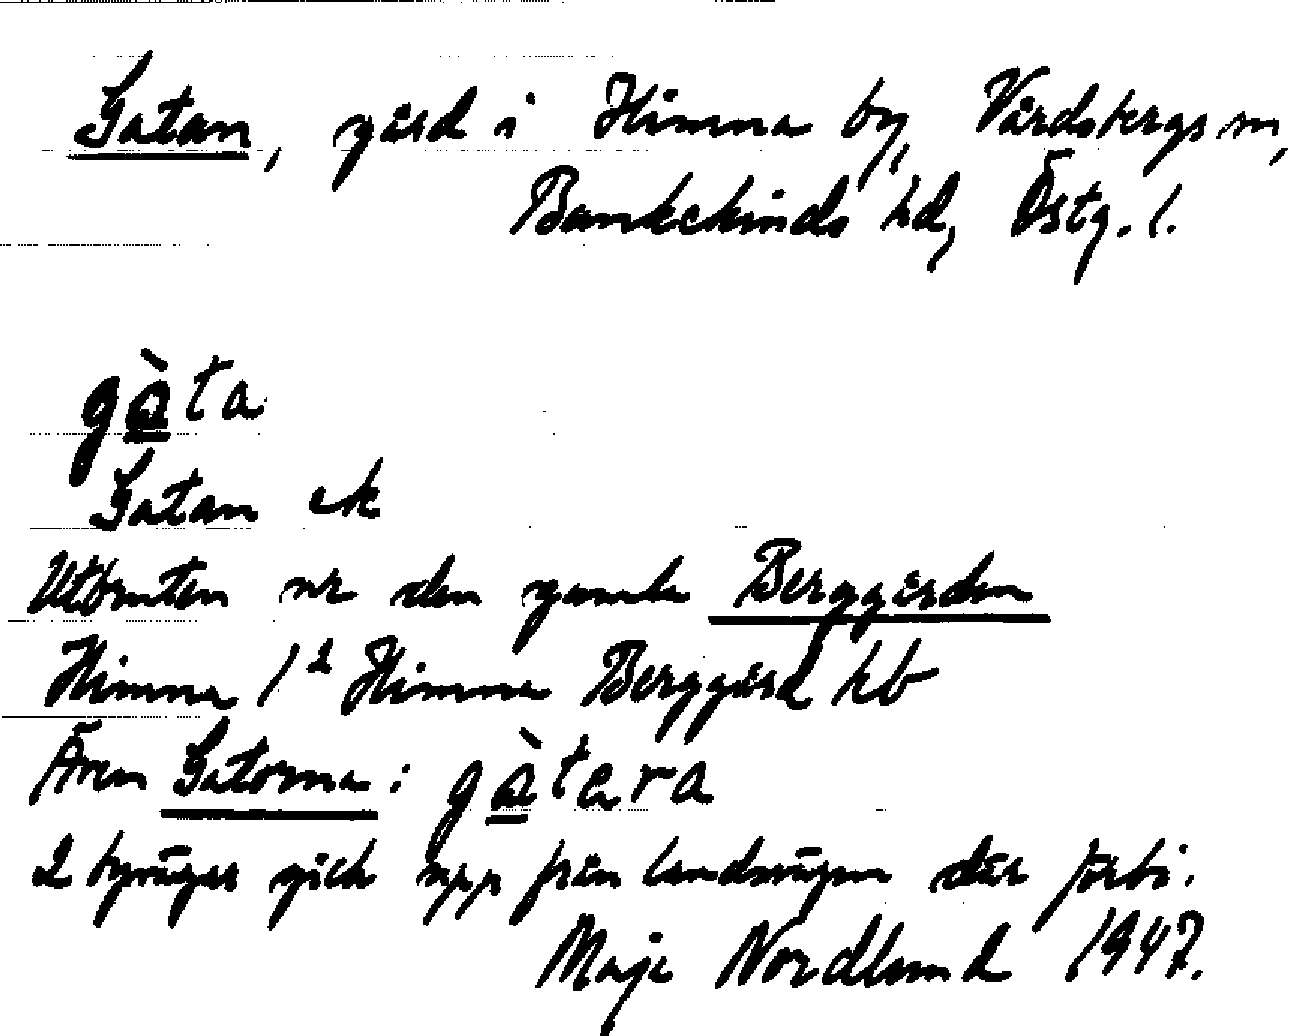 Gatan, gård i Himna by, Vårdsbergs sn,
Bankekinds hd, Östg. l.
gàta
Gatan ek
Utbruten ur den gamla Berggården
Himna 1² Himna Berggård hb
Även Gatorna: gàtera
2 byvägar gick upp från landsvägen där förbi.
Maja Nordlund 1947.